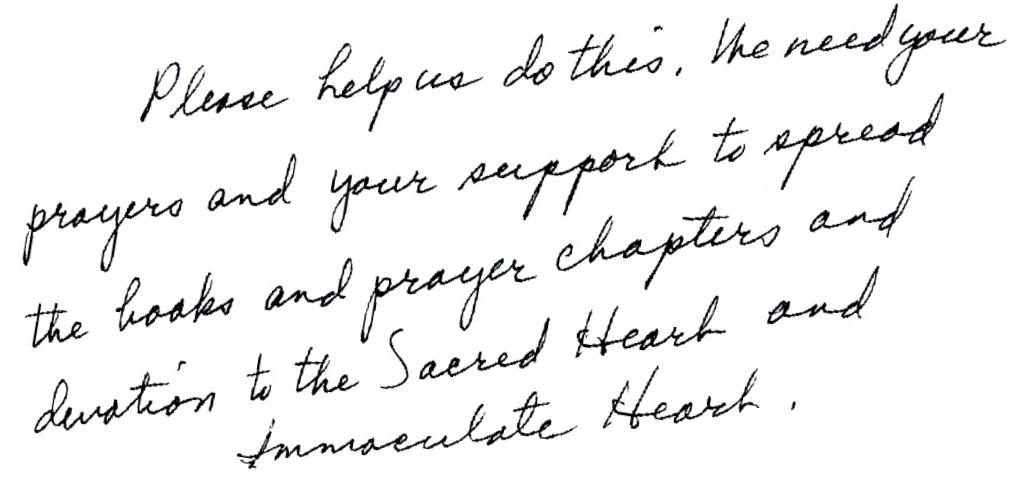 Please help us do this. We need your
prayers and your support to spread
the books and prayer chapters and
devotion to the Sacred Heart and
Immaculate Heart.